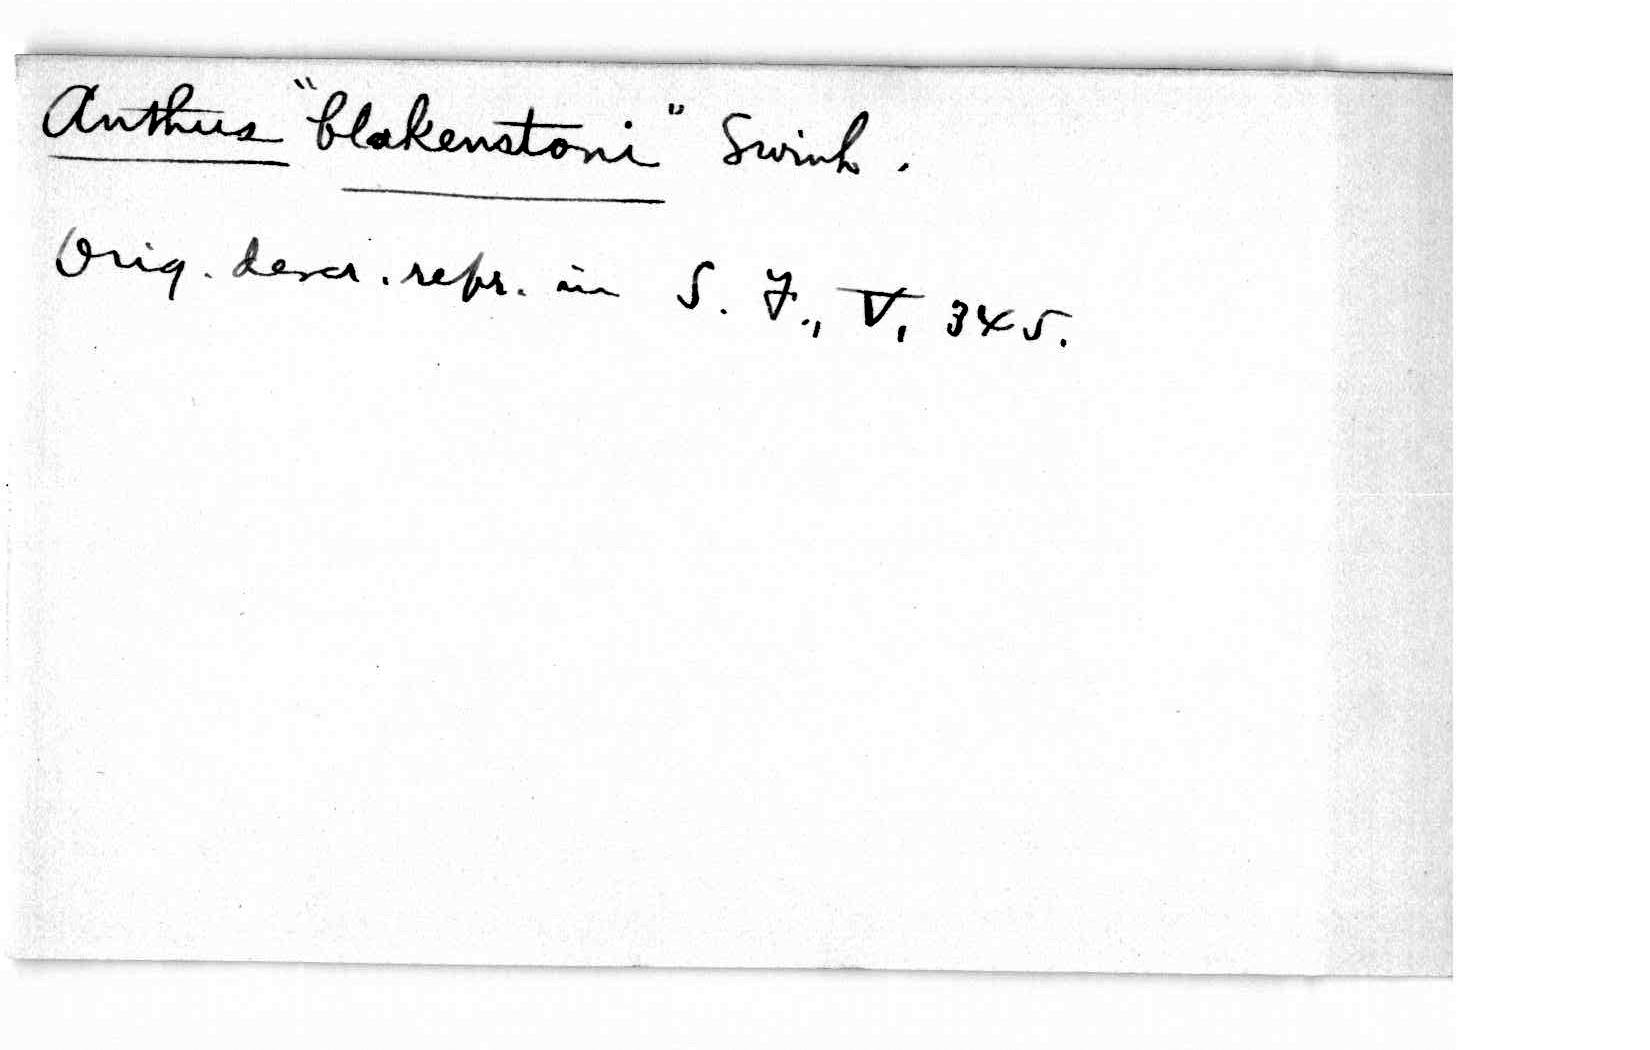 Anthus "blakenstoni" Swinh.
Orig. descr. repr. in S. F., V, 345.